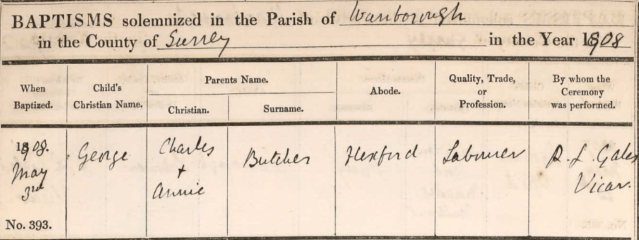 BAPTISMS solemnized in the Parish of Wanborough
in the County of Surrey in the Year 1908
When Baptized.
Child's Christian Name.
Parents Name.
Christian.
Surname.
Abode.
Quality, Trade, or Profession.
By whom the Ceremony was performed.
1908.
May
3rd
No. 393.
George
Charles
+
Annie
Butcher
Flexford
Labourer
Gales
Vicar.